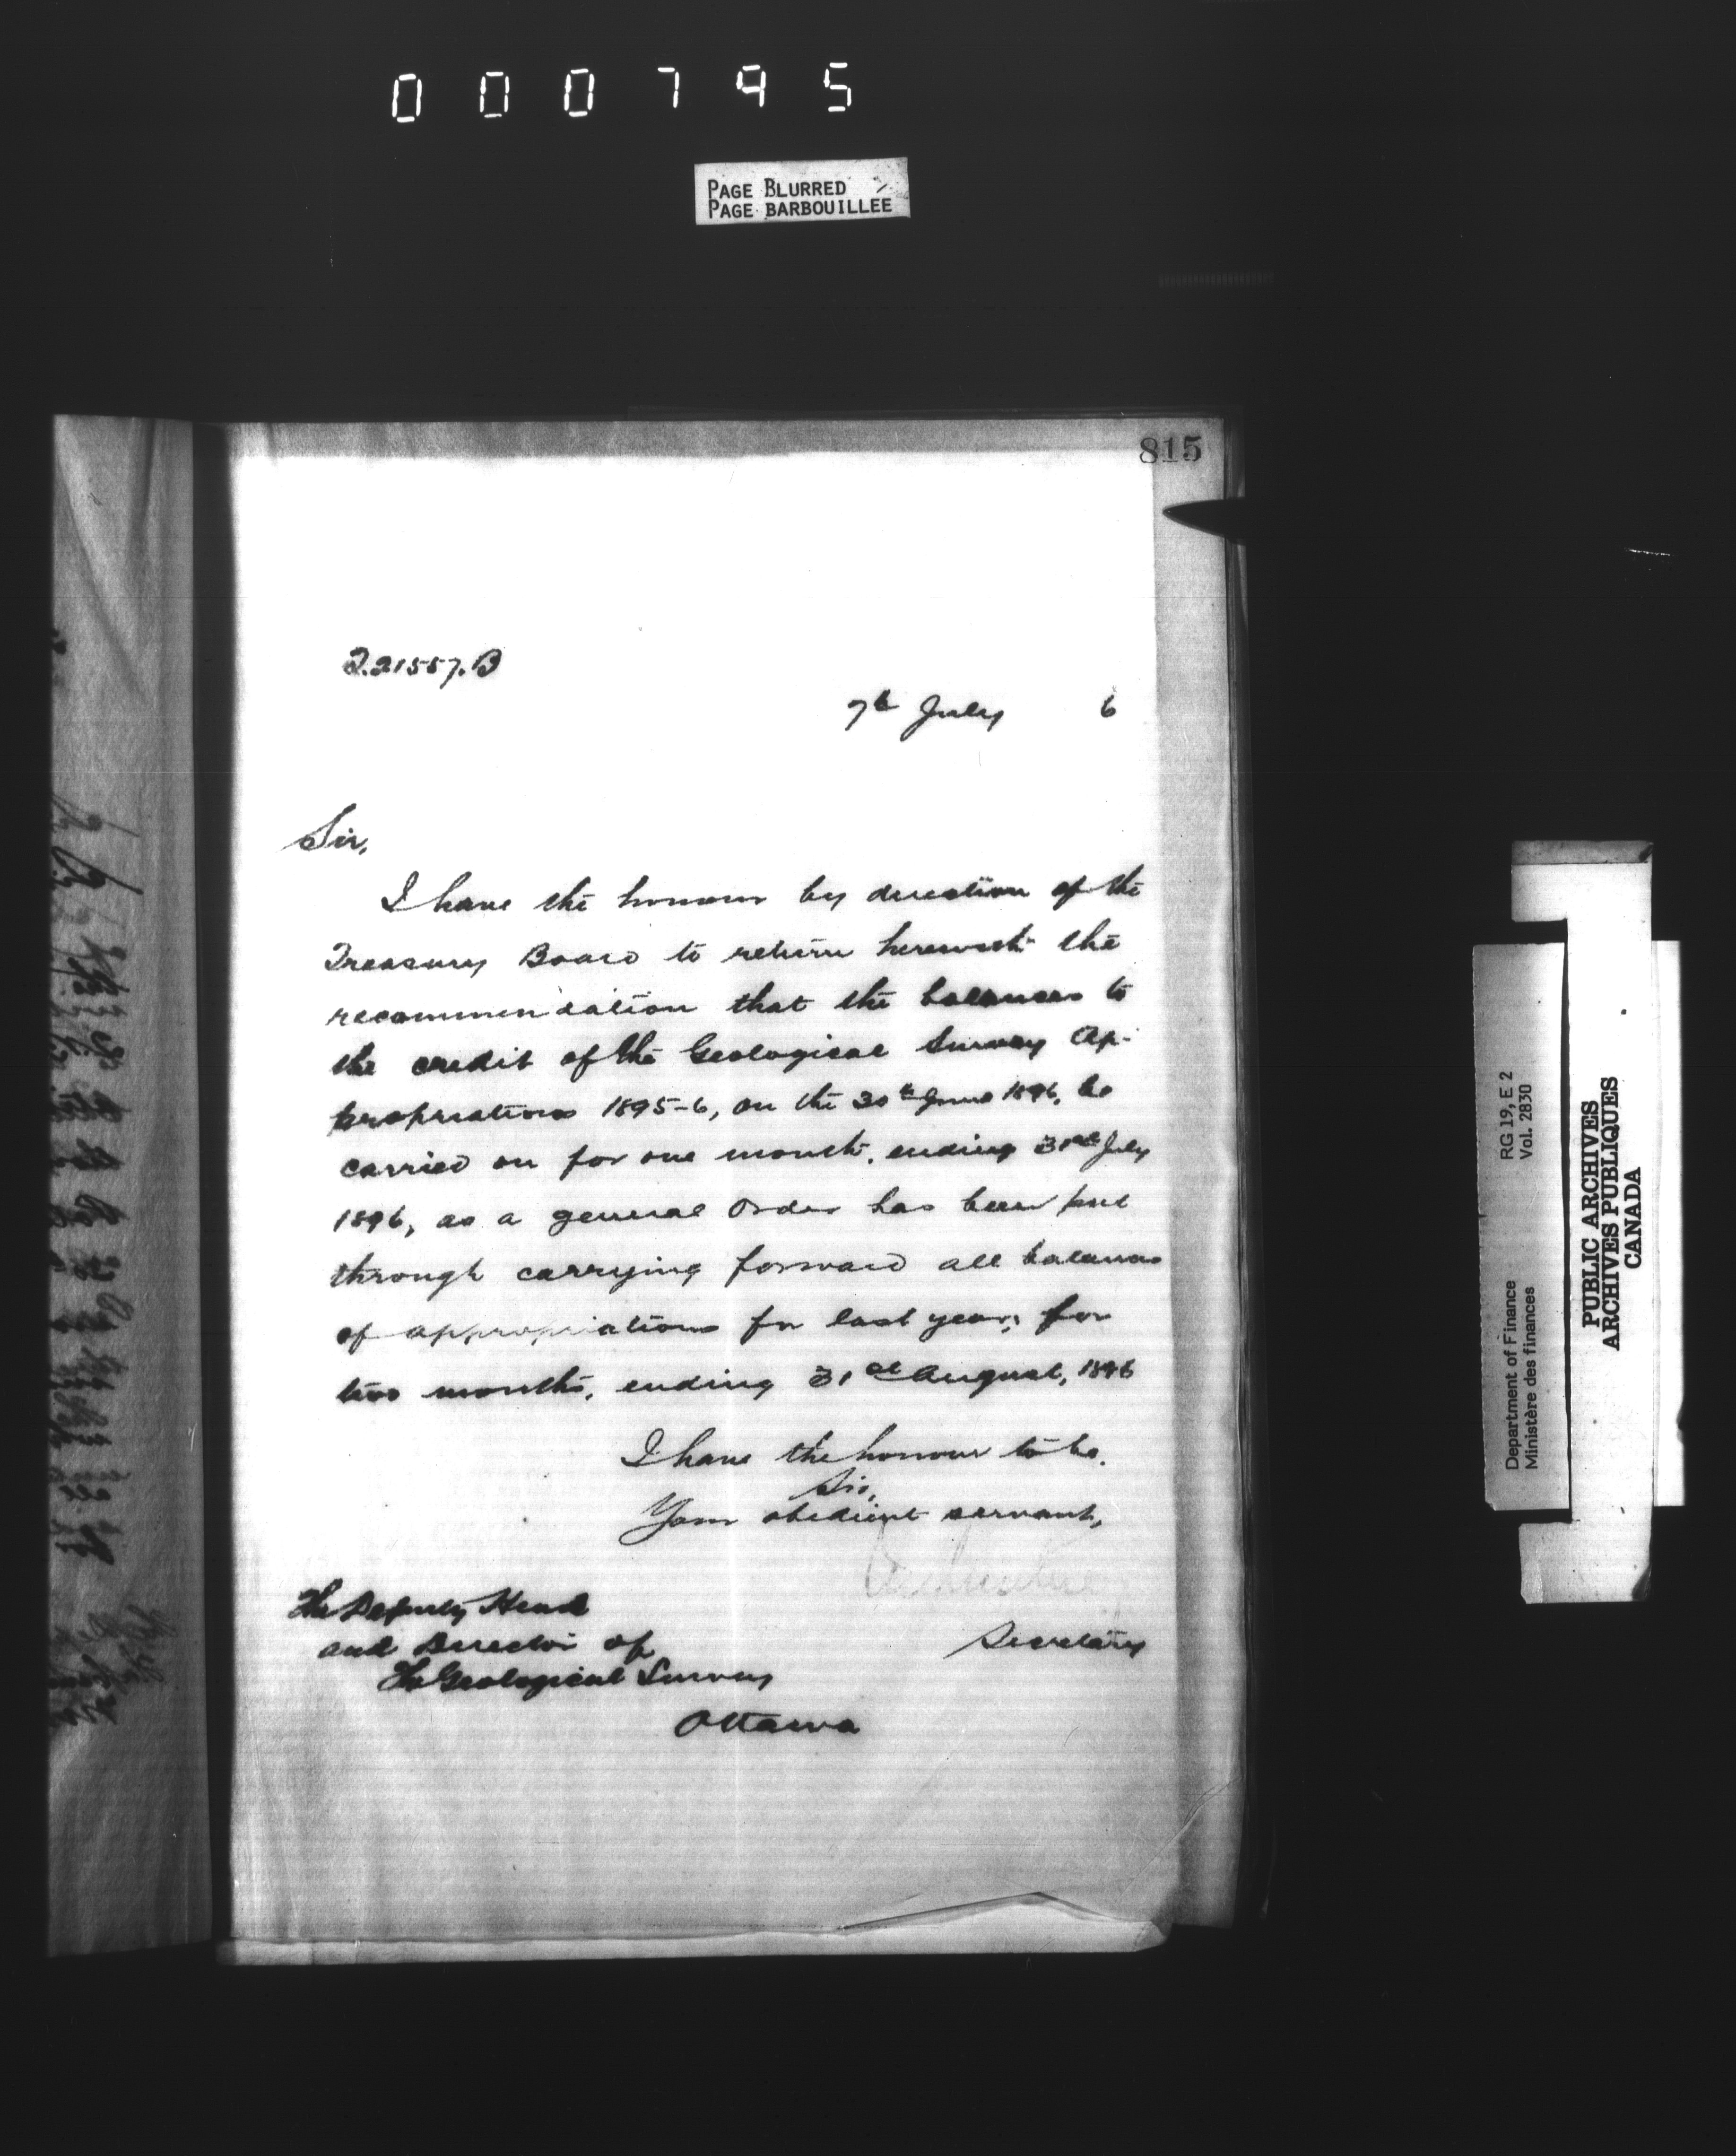 000795
PAGE BLURRED
PAGE BARBOUILLEE
815
T.21557.B
7th July 6
Sir,
I have the honour by direction of the
Treasury Board to return herewith the
recommendation that the balances to
the credit of the Geological Survey Ap-
propriations 1895-6, on the 30th June 1896, be
carried on for one month, ending 31st July
1896, as a general Order has been put
through carrying forward all balances
of appropriations for last year, for
two months, ending 31st August, 1896
I have the honour to be,
Sir,
Your obedient servant,
The Deputy Head
and Director of
The Geological Survey
Ottawa
Secretary
Department of Finance RG 19, E 2
Ministère des finances Vol. 2830
PUBLIC ARCHIVES
ARCHIVES PUBLIQUES
CANADA